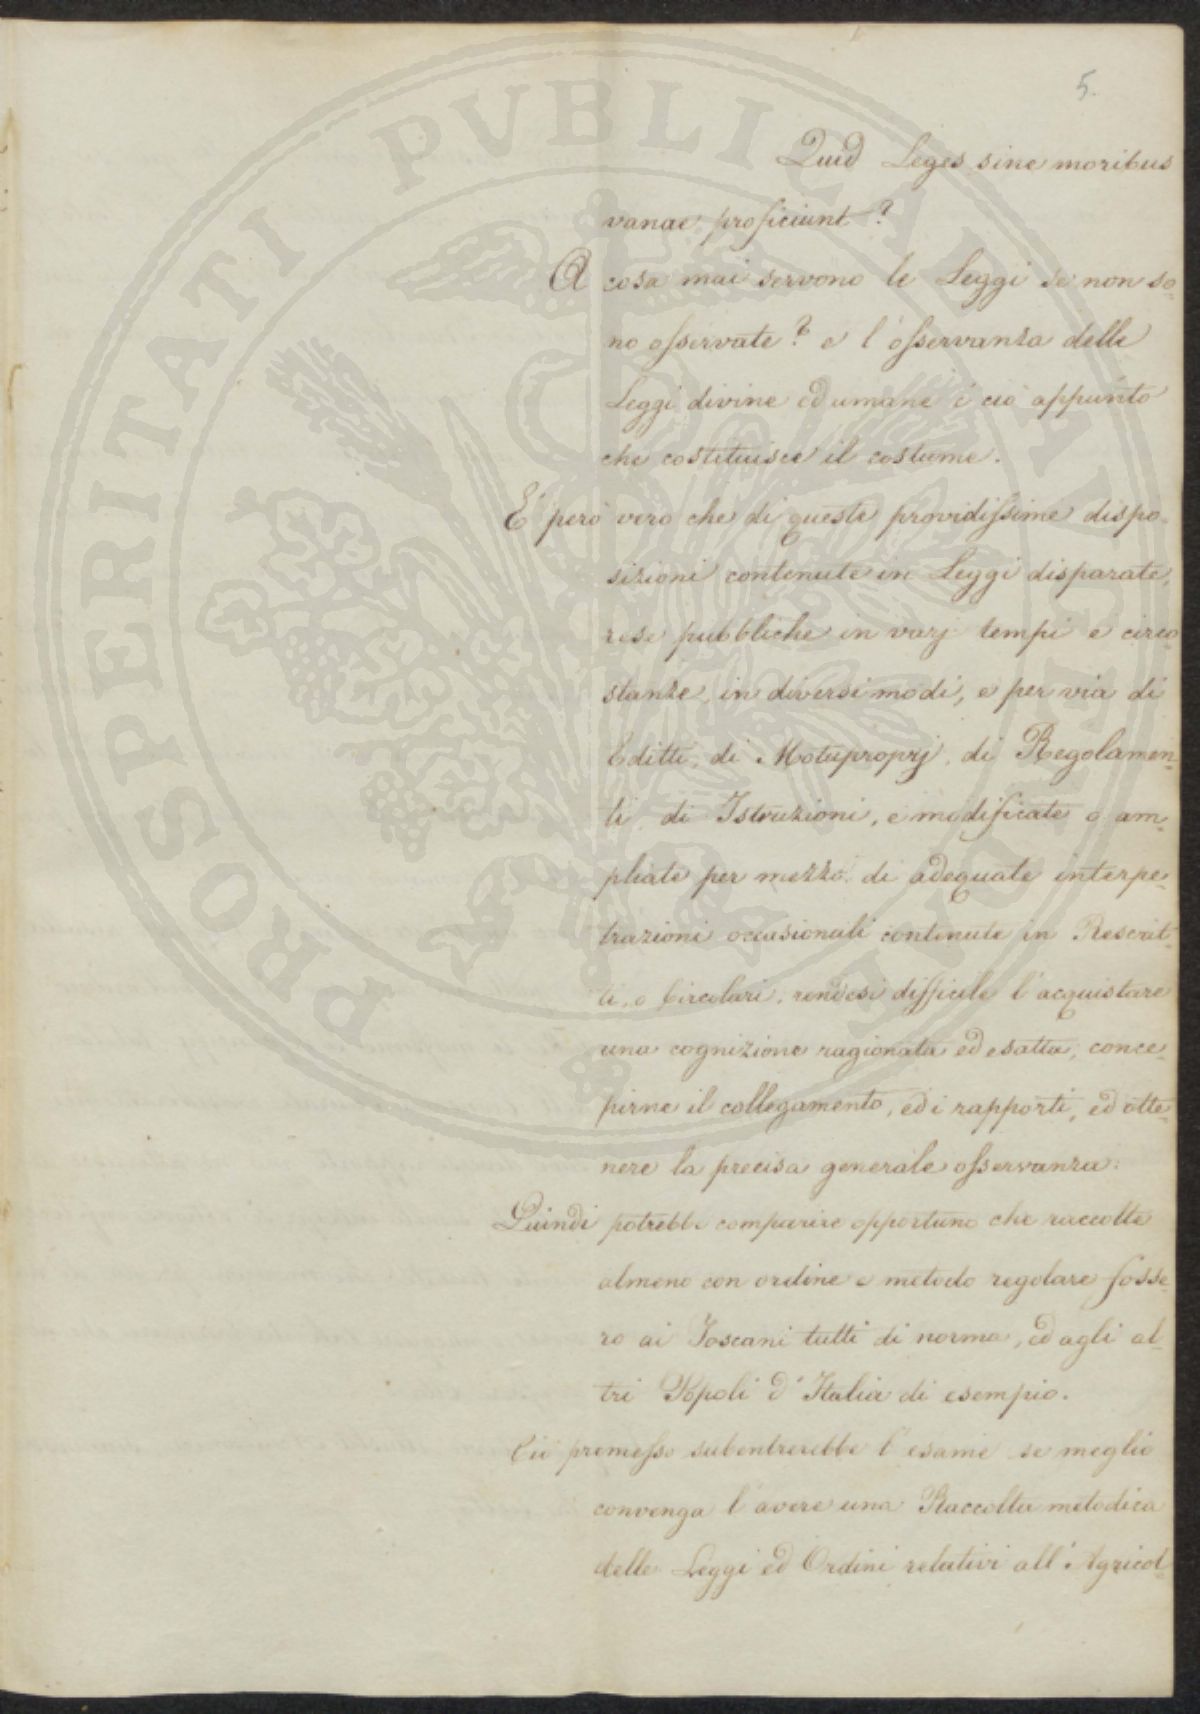 5.
Quid Leges sine moribus
vanae proficiunt?
A cosa mai servono le Leggi se non so=
no osservate? e l'osservanza delle
Leggi divine ed umane è ciò appunto
che costituisce il costume.
E' però vero che di queste providissime dispo=
sizioni contenute in Leggi disparate,
rese pubbliche in varj tempi e circo
stanze, in diversi modi, e per via di
Editti, di Motuproprj, di Regolamen=
ti, di Istruzioni, e modificate o am=
pliate per mezzo di adequate interpe=
trazioni occasionali contenute in Rescrit=
ti, o Circolari, rendesi difficile l'acquistare
una cognizione ragionata ed esatta, conce=
pirne il collegamento, ed i rapporti, ed otte=
nere la precisa generale osservanza.
Quindi potrebbe comparire opportuno che raccolte
almeno con ordine e metodo regolare fosse=
ro ai Toscani tutti di norma, ed agli al=
tri Popoli d'Italia di esempio.
Ciò premesso subentrerebbe l'esame se meglio
convenga l'avere una Raccolta metodica
delle Leggi ed Ordini relativi all'Agricol=
PROSPERITATI PUBLICAE AUGENDAE